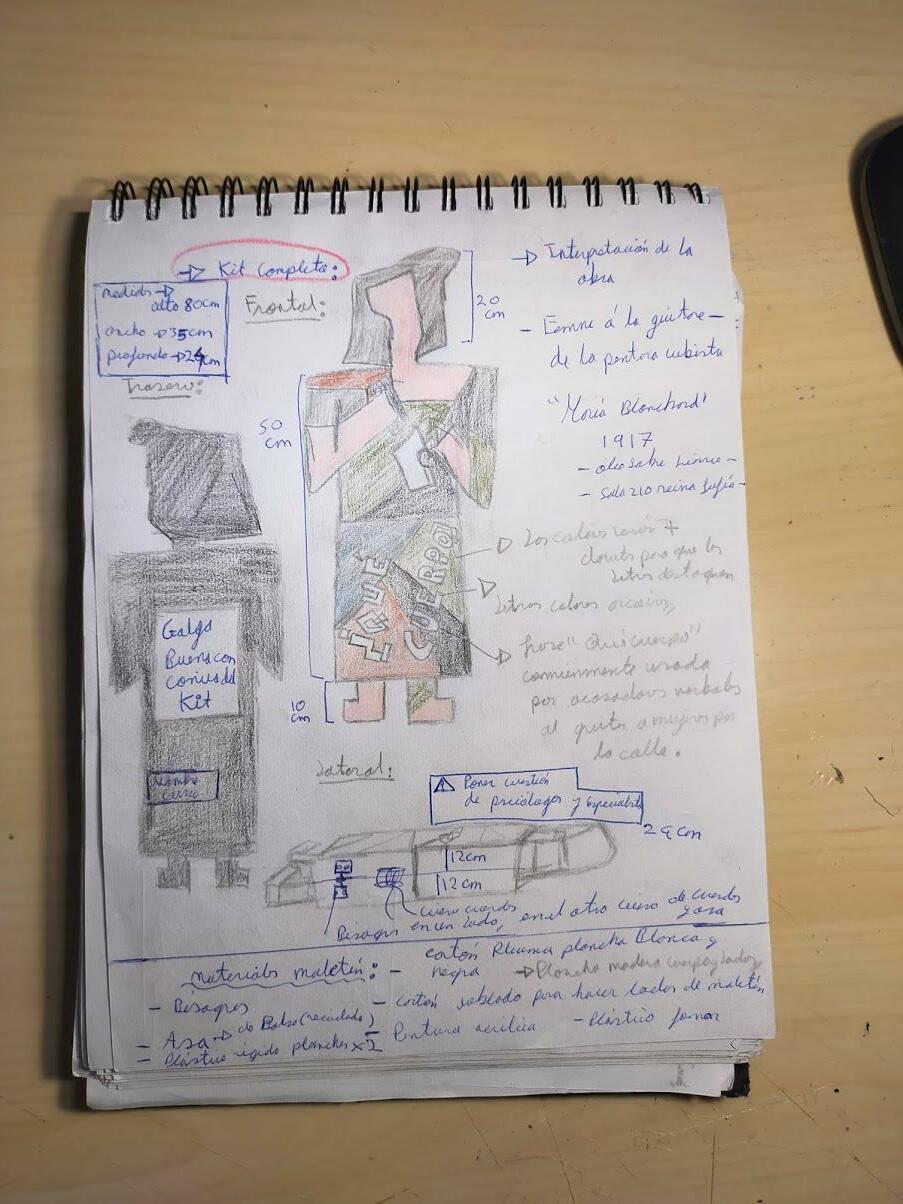 → Kit Completo:
medidas →
alto 80cm
ancho → 35cm
profundo → 24cm
Frontal:
20
cm
50
cm
10
cm
¡QUÉ
CUERPO!
→ Interpretación de la
obra
- Femme à la guitare -
de la pintora cubista
"María Blanchard"
1917
- óleo sobre lienzo -
- sala 210 reina Sofía -
→ Los colores serán +
claritos para que las
letras destaquen
→ letras colores oscuros
→ frase "Qué cuerpo"
comúnmente usada
por acosadores verbales
al gritar a mujeres por
la calle.
Trasero:
Galga
Buena con
del
Kit
Nombre
curso
Lateral:
⚠ Poner
de psicólogos y especialistas
24cm
12cm
12cm
cuerdas
Bisagras en un lado, en el otro de cuerdas
y asa
materiales maletín:
- Bisagras
- Asa → de Bolso (reciclado)
- Plástico rígido planchas x2
- cartón pluma plancha Blanca y
negra → Plancha madera
- cartón para hacer lados de maletín
- Pintura acrílica
- Plástico forrar